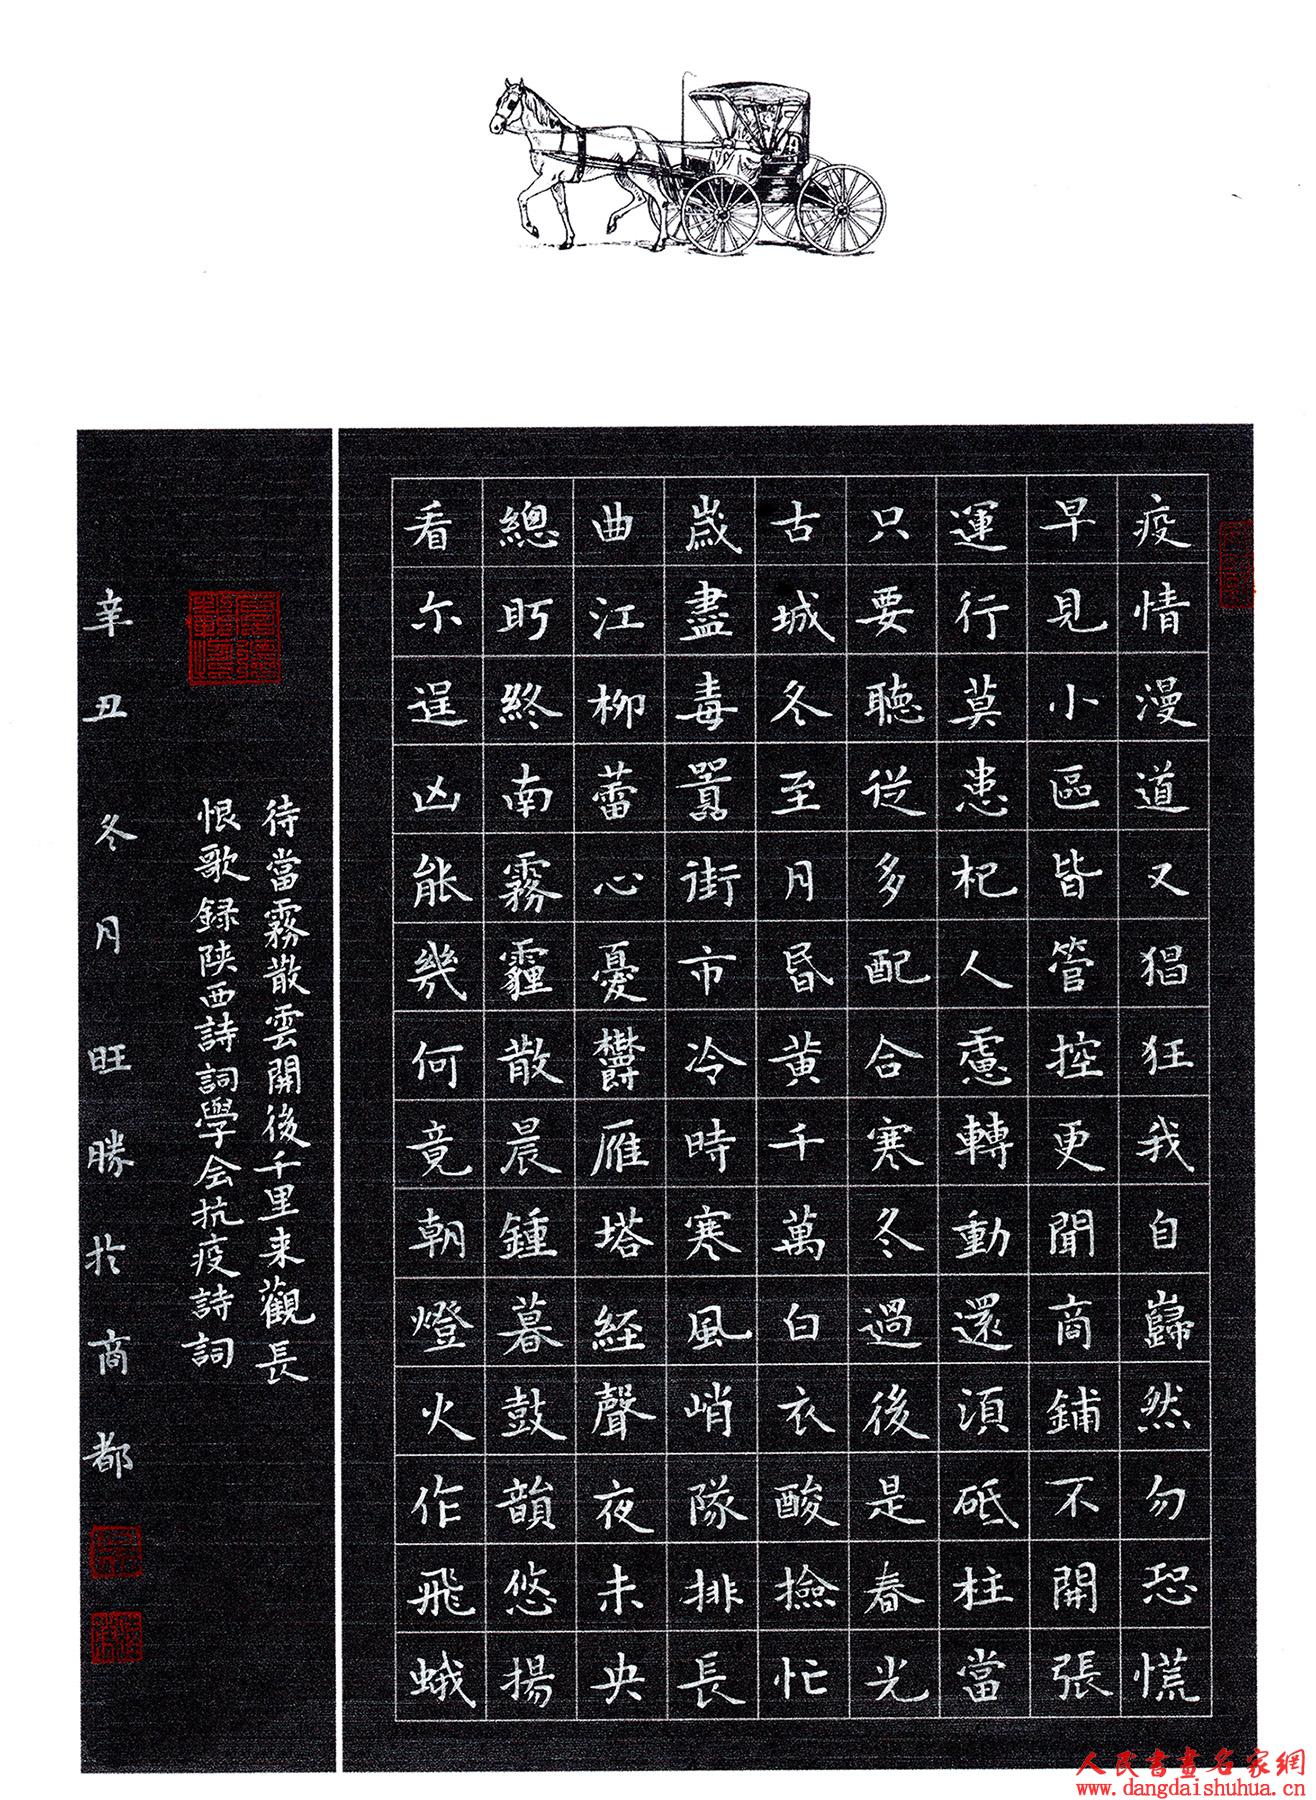 疫情漫道又猖狂我自巋然勿恐慌
早見小區皆管控更聞商鋪不開張
運行莫患杞人慮轉動還須砥柱當
只要聽從多配合寒冬過後是春光
古城冬至月昏黄千萬白衣酸撿忙
歲盡毒囂街市冷時寒風峭隊排長
曲江柳蕾心憂鬱雁塔経聲夜未央
總盻終南霧霾散晨鍾暮鼓韻悠揚
看尔逞凶能幾何竟朝燈火作飛蛾
待當霧散雲開後千里来觀長
恨歌録陕西詩詞學会抗疫詩詞
辛丑冬月旺勝於商都
人民書畫名家網
www.dangdaishuhua.cn